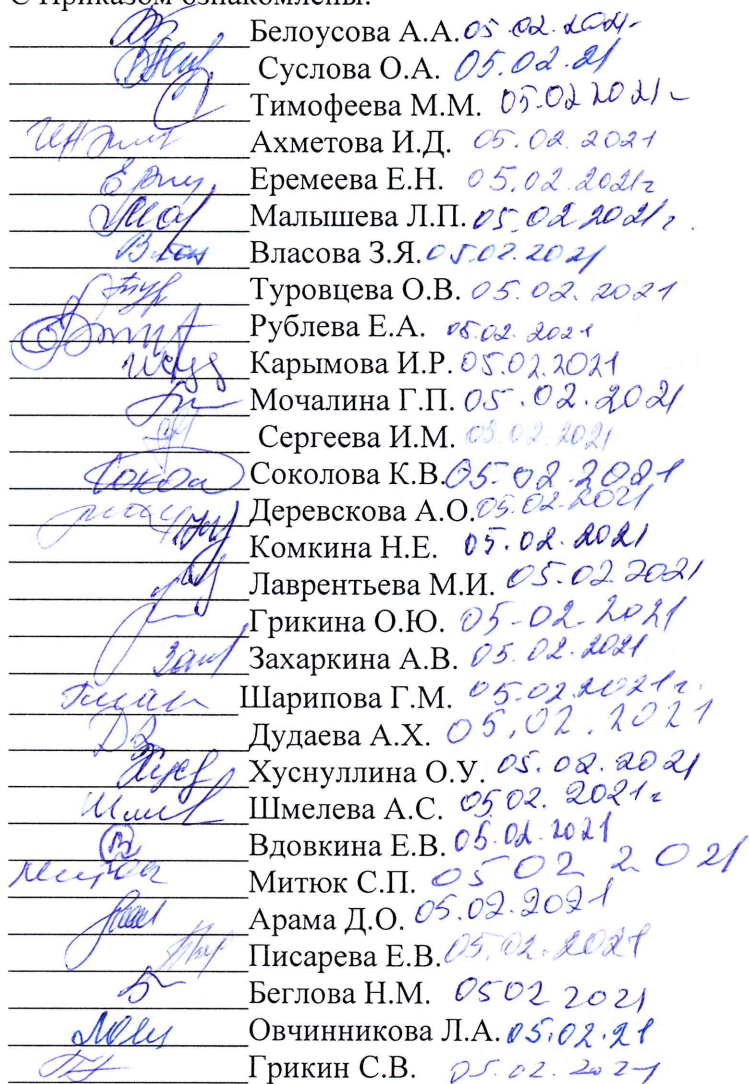 С Приказом ознакомлены:
Белоусова А.А. 05.02.2021
Суслова О.А. 05.02.21
Тимофеева М.М. 05.02 2021г
Ахметова И.Д. 05.02.2021
Еремеева Е.Н. 05.02.2021г
Малышева Л.П. 05.02.2021г.
Власова З.Я. 05.02.2021
Туровцева О.В. 05.02.2021
Рублева Е.А. 05.02.2021
Карымова И.Р. 05.02.2021
Мочалина Г.П. 05.02.2021
Сергеева И.М. 05.02.2021
Соколова К.В. 05.02.2021
Деревскова А.О. 05.02.2021
Комкина Н.Е. 05.02.2021
Лаврентьева М.И. 05.02.2021
Грикина О.Ю. 05-02.2021
Захаркина А.В. 05.02.2021
Шарипова Г.М. 05.02.2021г.
Дудаева А.Х. 05.02.2021
Хуснуллина О.У. 05.02.2021
Шмелева А.С. 05 02. 2021г
Вдовкина Е.В. 05.02.2021
Митюк С.П. 05 02 2021
Арама Д.О. 05.02.2021
Писарева Е.В. 05.02.2021
Беглова Н.М. 0502 2021
Овчинникова Л.А. 05.02.21
Грикин С.В. 05.02.2021